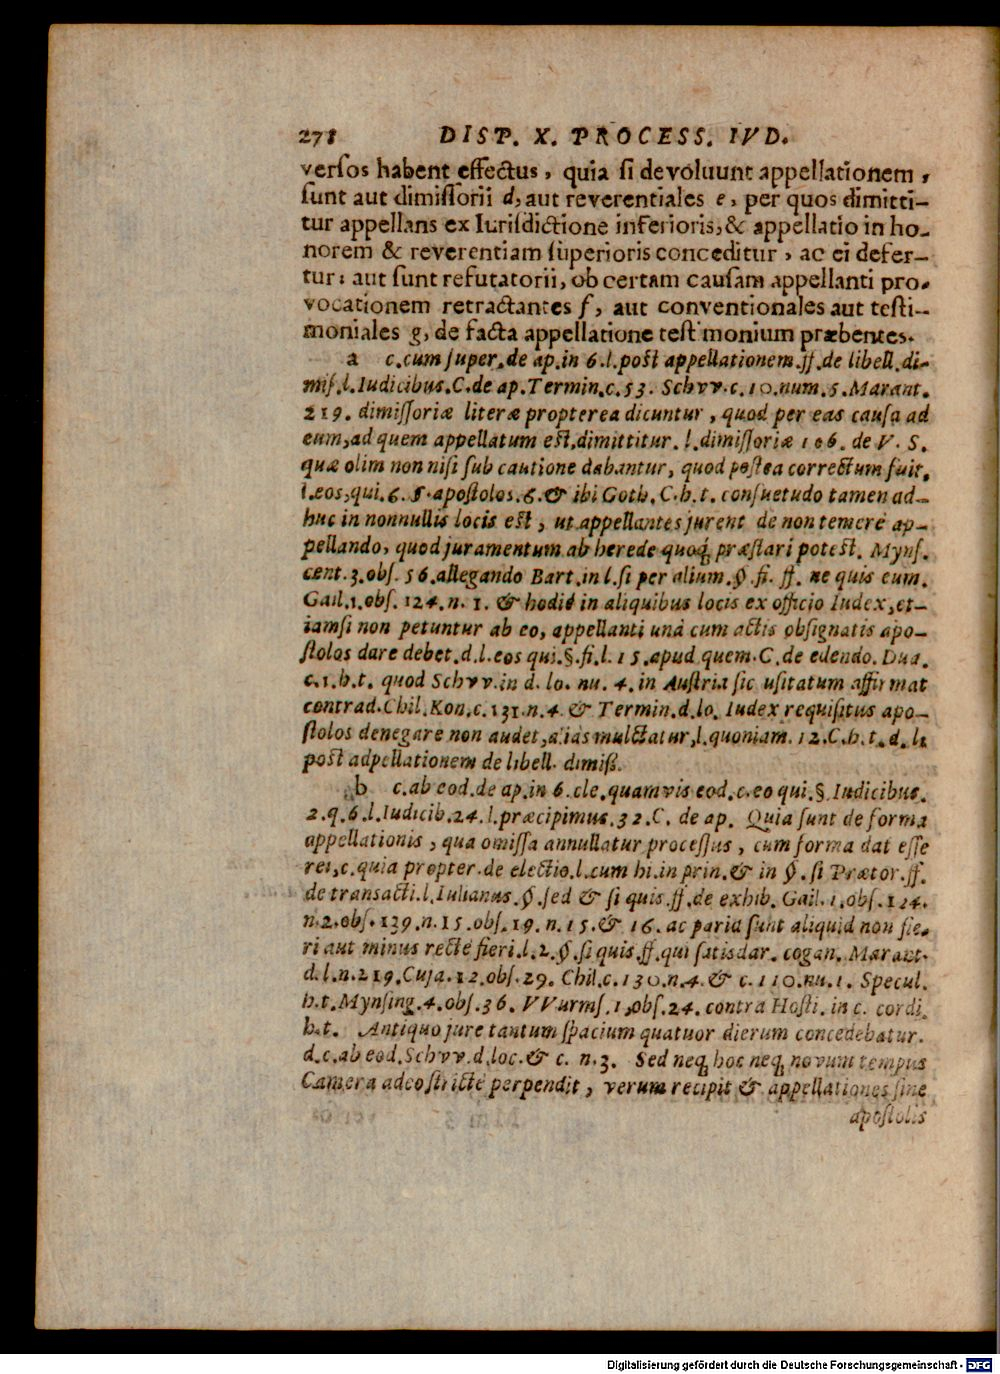 278 DISP. X. PROCESS. IVD.
versos habent effectus, quia si devoluunt appellationem,
sunt aut dimissorii d, aut reverentiales e, per quos dimitti-
tur appellans ex Iurisdictione inferioris, & appellatio in ho-
norem & reverentiam superioris conceditur, ac ei defer-
tur: aut sunt refutatorii, ob certam causam appellanti pro-
vocationem retractantes f, aut conventionales aut testi-
moniales g, de facta appellatione testimonium præbentes.
a c. cum super. de ap. in 6. l. post appellationem. ff. de libell. di-
mis. l. Iudicibus. C. de ap. Termin. c. 53. Schvv. c. 10. num. 5. Marant.
219. dimissoriæ literæ propterea dicuntur, quod per eas causa ad
eum, ad quem appellatum est, dimittitur. l. dimissoriæ 106. de V. S.
quæ olim non nisi sub cautione dabantur, quod postea correctum fuit,
l. eos, qui. 6. §. apostolos. 6. & ibi Goth. C. h. t. consuetudo tamen ad-
huc in nonnullis locis est, ut appellantes jurent de non temerè ap-
pellando, quod juramentum ab herede quoq; præstari potest. Myns.
cent. 3. obs. 56. allegando Bart. in l. si per alium. §. fi. ff. ne quis eum.
Gail. 1. obs. 124. n. 1. & hodiè in aliquibus locis ex officio Iudex, et-
iamsi non petuntur ab eo, appellanti unà cum actis obsignatis apo-
stolos dare debet. d. l. eos qui. §. fi. l. 15. apud quem. C. de edendo. Dua.
c. 1. h. t. quod Schvv. in d. lo. nu. 4. in Austria sic usitatum affirmat
contrad. Chil. Kon. c. 131. n. 4. & Termin. d. lo. Iudex requisitus apo-
stolos denegare non audet, alias mulctatur, l. quoniam. 12. C. h. t. d. l.
post adpellationem de libell. dimiß.
b c. ab eod. de ap. in 6. cle. quamvis eod. c. eo qui. § Iudicibus.
2. q. 6. l. Iudicib. 24. l. præcipimus. 32. C. de ap. Quia sunt de forma
appellationis, qua omissa annullatur processus, cum forma dat esse
rei, c. quia propter. de electio. l. cum hi. in prin. & in §. si Prætor. ff.
de transacti. l. Iulianus. §. sed & si quis. ff. de exhib. Gail. 1. obs. 124.
n. 2. obs. 139. n. 15. obs. 19. n. 15. & 16. ac paria sunt aliquid non fie-
ri aut minus rectè fieri. l. 2. §. si quis. ff. qui satisdar. cogan. Marant.
d. l. n. 219. Cuja. 12. obs. 29. Chil. c. 130. n. 4. & c. 110. nu. 1. Specul.
h. t. Mynsing. 4. obs. 36. VVurms. 1, obs. 24. contra Hosti. in c. cordi.
h. t. Antiquo jure tantum spacium quatuor dierum concedebatur.
d. c. ab eod. Schvv. d. loc. & c. n. 3. Sed neq; hoc neq; novum tempus
Camera adeo strictè perpendit, verum recipit & appellationes sine
apostolis
Digitalisierung gefördert durch die Deutsche Forschungsgemeinschaft - DFG